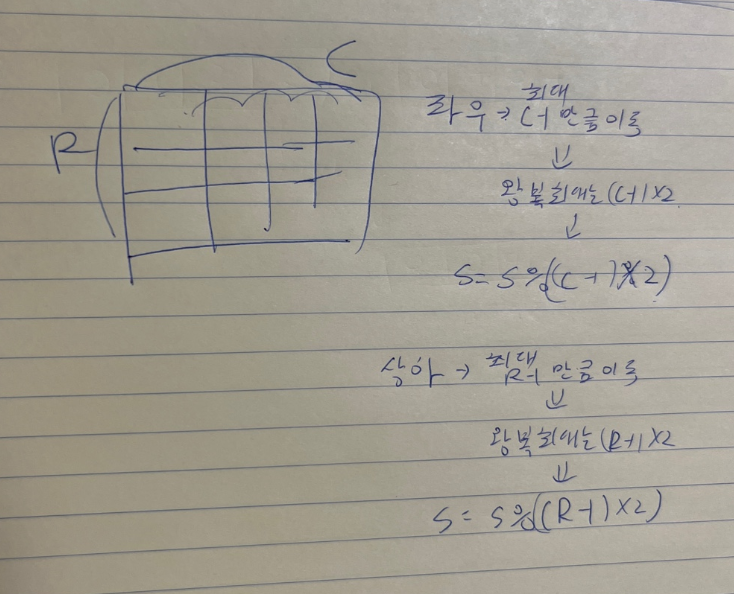 C
R
좌우 → 최대 C-1 만큼 이동
⇓
왕복 최대는 (C-1)×2
↓
S = S%((C-1)×2)
상하 → 최대 R-1 만큼 이동
⇓
왕복 최대는 (R-1)×2
⇓
S = S%((R-1)×2)